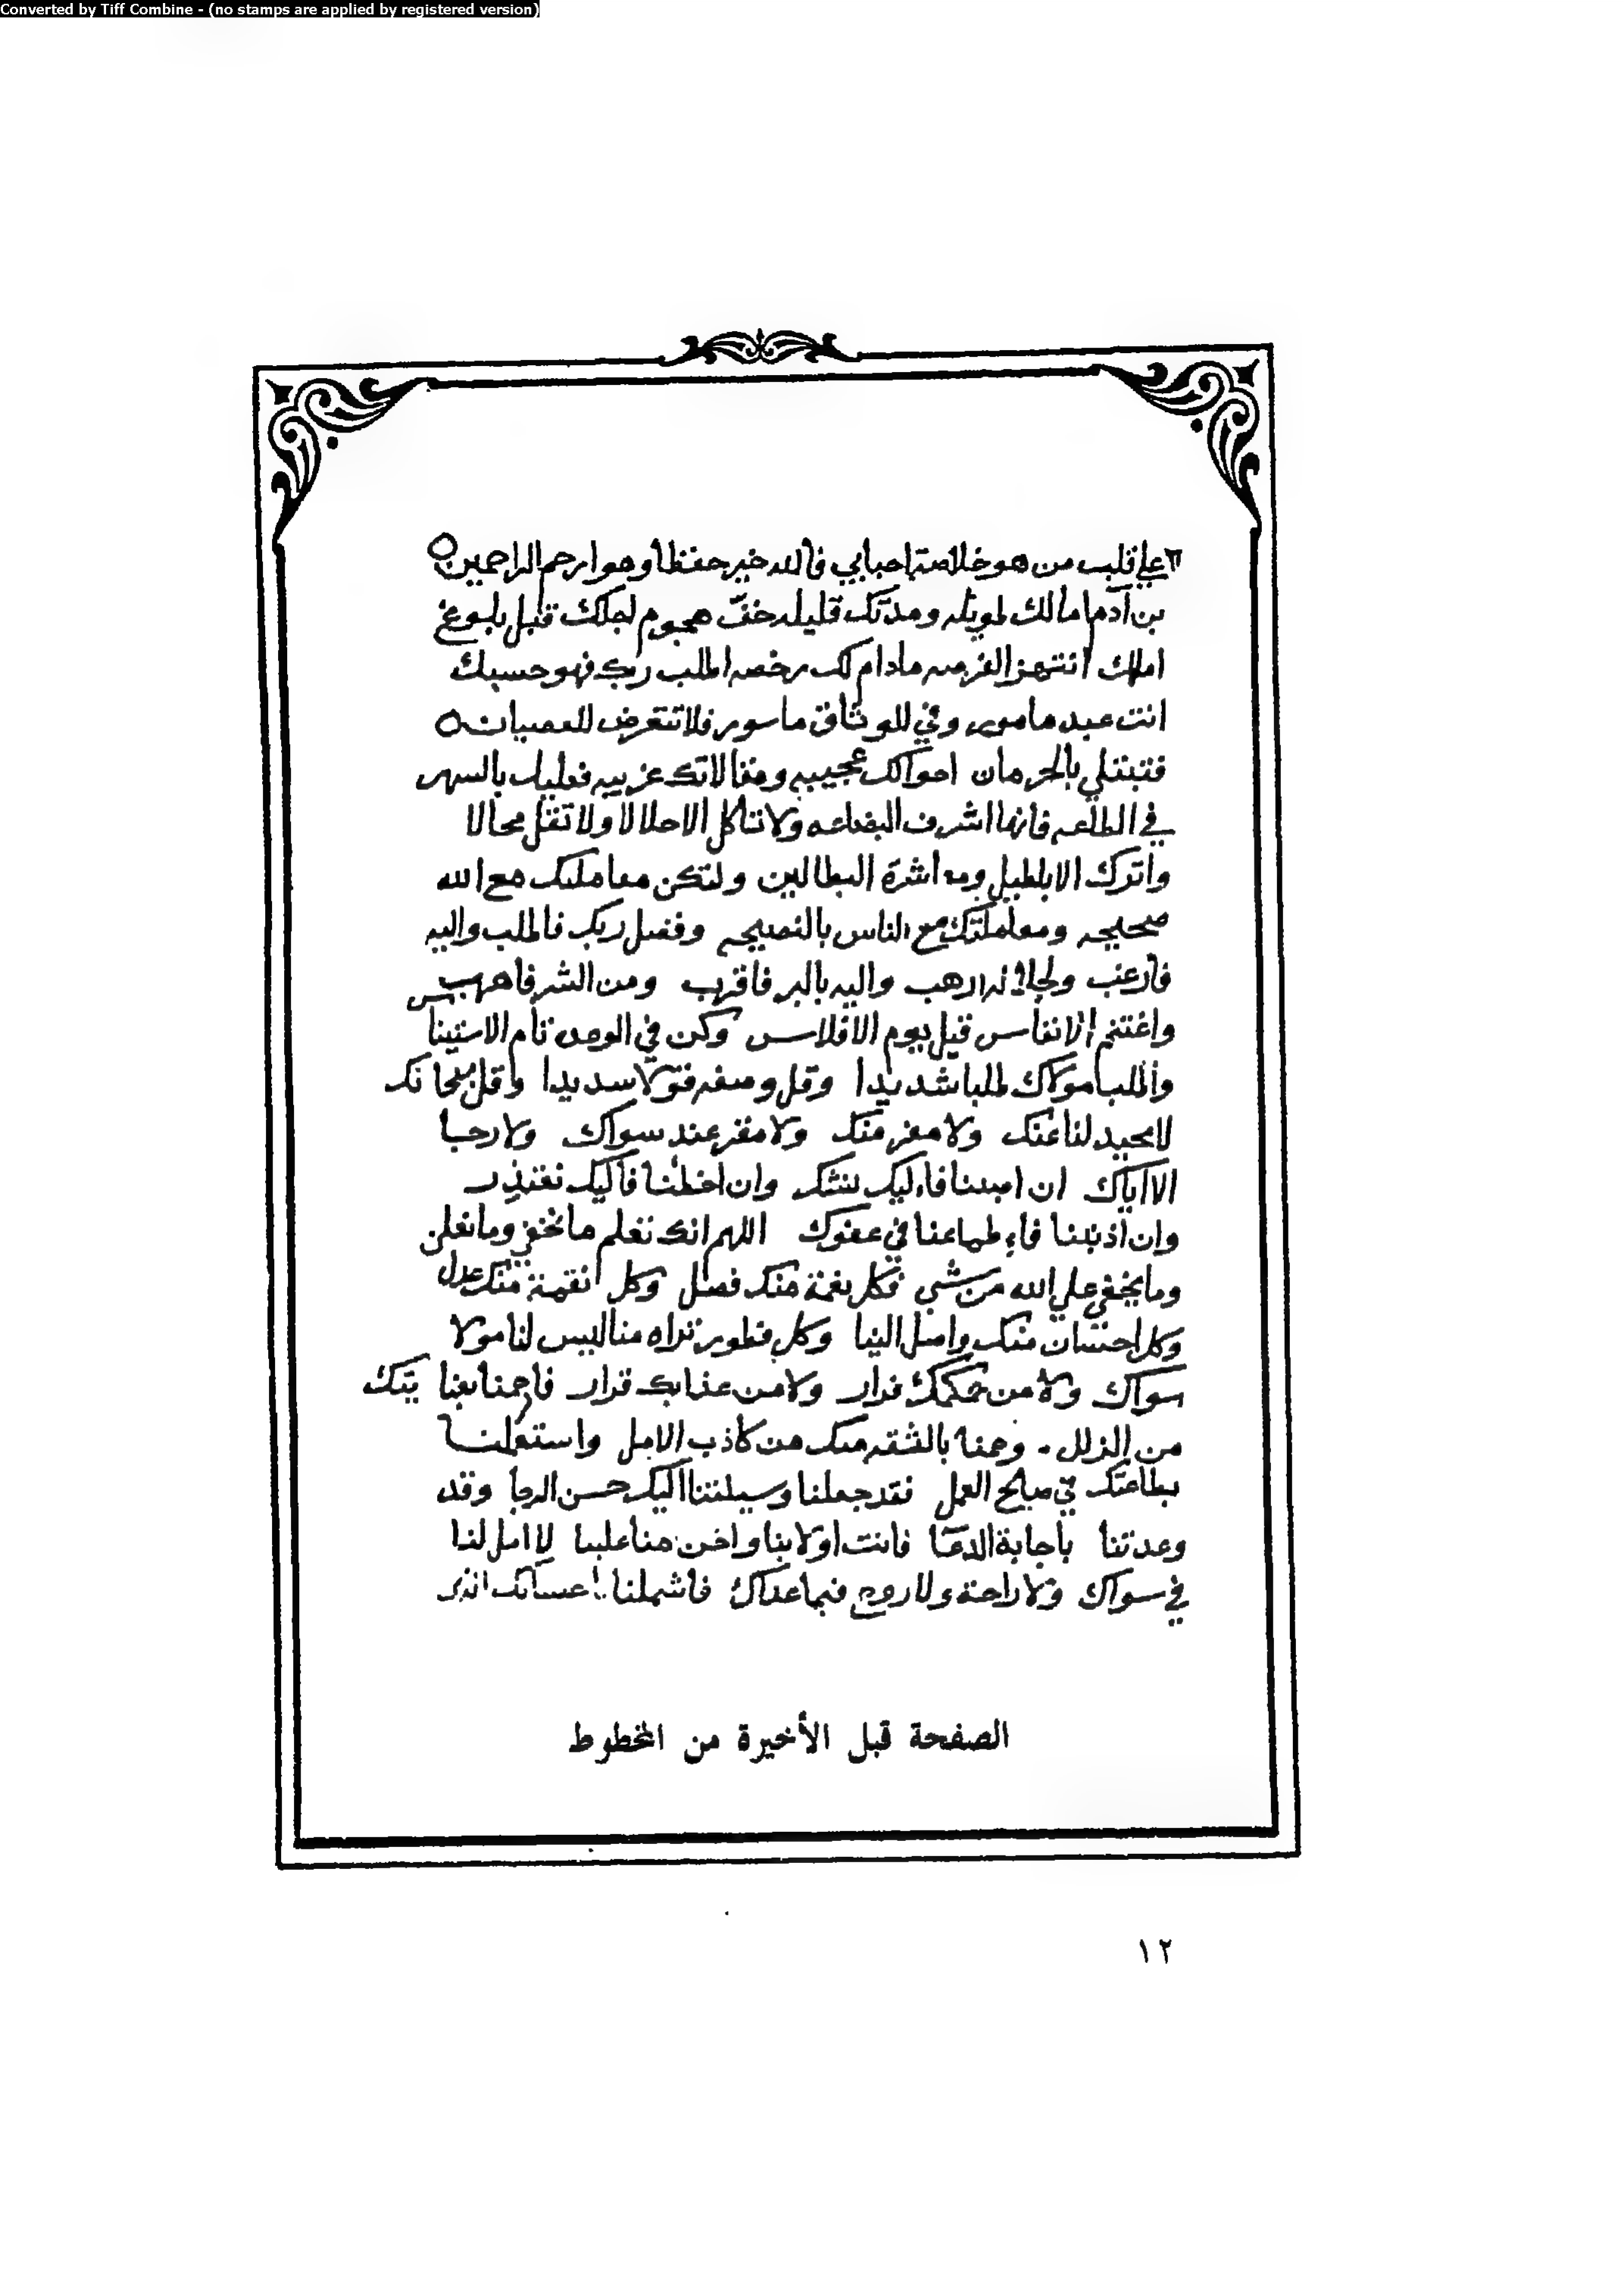 Converted by Tiff Combine - (no stamps are applied by registered version)
علي قلب من هو خلاصة احبابي فالله خير حفظا وهو ارحم الراحمين
بن آدم امالك طويله ومدتك قليله خف هجوم اجلك قبل بلوغ
املك انتهز الفرصه مادام لك رخصه اطلب ربك فهو حسبك
انت عبد مامور وفي الوثاق ماسور فلا تتعرض للعصيان
فتبتلي بالحرمان احوالك عجيبه ومقالاتك غريبه فعليك بالسهر
في الطاعه فانها اشرف البضاعه ولا تاكل الا حلالا ولا تقل محالا
واترك الاباطيل ومعاشرة البطالين ولتكن معاملتك مع الله
صحيحه ومعاملتك مع الناس بالنصيحه وفضل ربك فاطلب واليه
فارغب ارهب واليه بالبر فاقرب ومن الشر فاهرب
واغتنم الانفاس قبل يوم الافلاس وكن في الوحده تام الاستينا
واطلب مولاك طلبا شديدا وقل وصفه قولا سديدا وقل سبحانك
لا محيد لنا عنك ولا مفر منك ولا مقر عند سواك ولا رجا
الا اياك ان فاليك وان اخطئنا فاليك نعتذر
وان اذنبنا فاطماعنا في عفوك اللهم انك تعلم ما نخفي وما نعلن
وما يخفي علي الله من شي فكل نعمة منك فضل وكل نقمة منك عدل
وكل احسان منك واصل الينا وكل تراه منا ليس لنا مولا
سواك ولا من حكمك فرار ولا من عذابك قرار يتك
من الزلل بالثقه منك من كاذب الامل واستعملنا
بطاعتك في صالح العمل فقد جعلنا وسيلتنا اليك حسن الرجا وقد
وعدتنا باجابة الدعا فانت اولا بنا لا امل لنا
في سواك ولا راحة ولا روح فيما عداك فاشملنا
الصفحة قبل الأخيرة من المخطوط
١٢